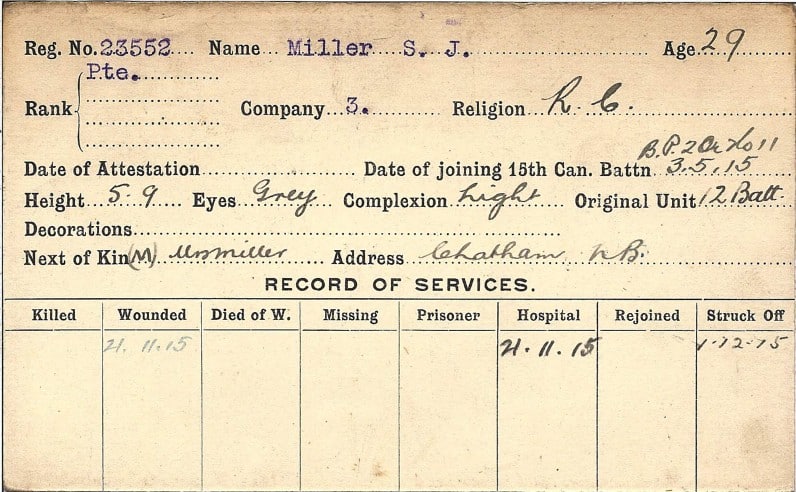 Reg. No. 23552 Name Miller S. J. Age 29
Pte.
Rank Company 3. Religion R. C.
B.P. 2 Or No 11
Date of Attestation Date of joining 15th Can. Battn 3.5.15
Height 5-9 Eyes Grey Complexion Light Original Unit 12 Batt.
Decorations
Next of Kin (M) Mrs Miller Address Chatham N.B.
RECORD OF SERVICES.
Killed Wounded Died of W. Missing Prisoner Hospital Rejoined Struck Off
21.11.15 21.11.15 1-12-15